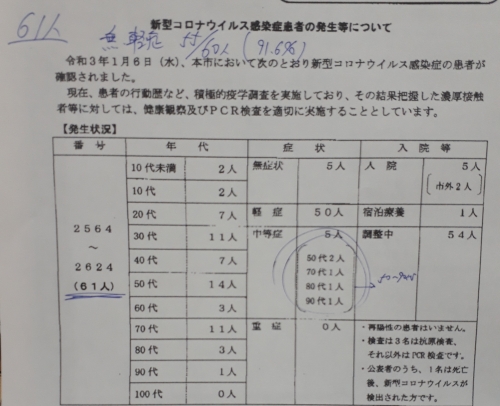 61人
新型コロナウイルス感染症患者の発生等について
無 軽症 55/60人 (91.6%)
令和3年1月6日（水）、本市において次のとおり新型コロナウイルス感染症の患者が
確認されました。
現在、患者の行動歴など、積極的疫学調査を実施しており、その結果把握した濃厚接触
者等に対しては、健康観察及びＰＣＲ検査を適切に実施することとしています。
【発生状況】
番号 年代 症状 入院等
2564
～
2624
（61人）
10代未満 2人
10代 2人
20代 7人
30代 11人
40代 7人
50代 14人
60代 3人
70代 11人
80代 3人
90代 1人
100代 0人
無症状 5人
軽症 50人
中等症 5人
50代2人
70代1人
80代1人
90代1人
重症 0人
入院 5人
（市外2人）
宿泊療養 1人
調整中 54人
・再陽性の患者はいません。
・検査は3名は抗原検査、
それ以外はPCR検査です。
・公表者のうち、1名は死亡
後、新型コロナウイルスが
検出された方です。